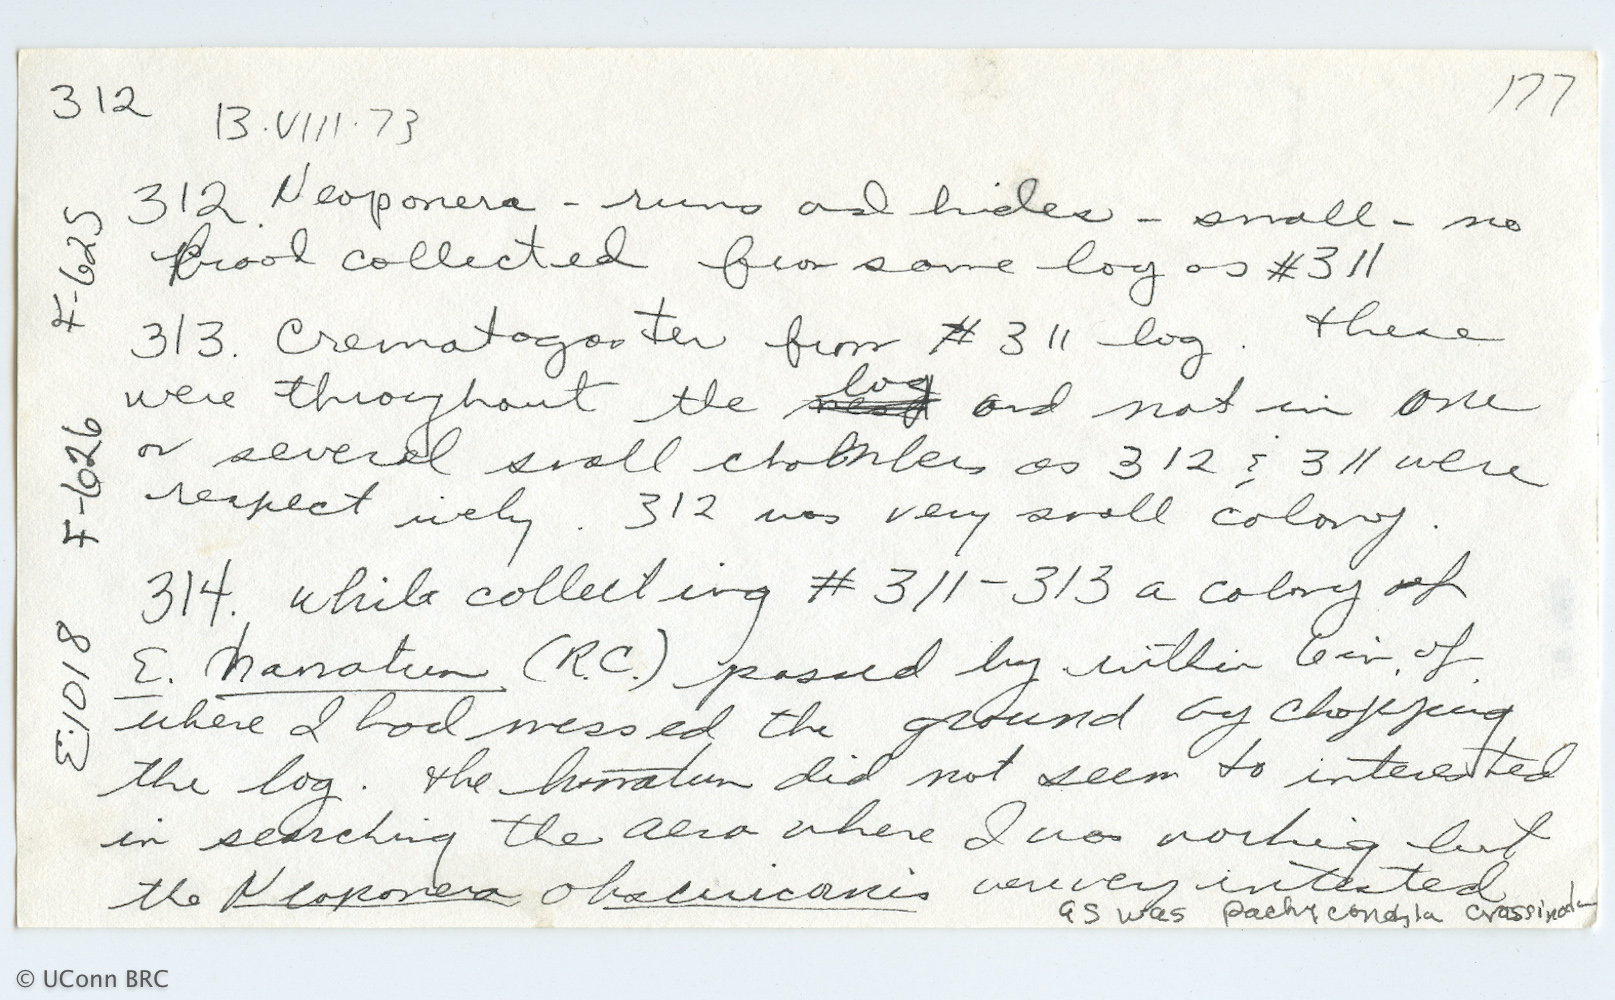 312
177
13.VIII.73
312. Neoponera - runs and hides - small - no
brood collected from same log as #311
313. Crematogaster from #311 log. these
were throughout the log and not in one
or several small chambers as 312 & 311 were
respectively. 312 was very small colony.
314. while collecting #311-313 a colony of
E. hamatum (R.C.) passed by within 6 in. of
where I had messed the ground by chopping
the log. the hamatum did not seem to interested
in searching the aera where I was working but
the Neoponera obscuricornis very intested
as was pachycondyla crassinoda
4-625
4-626
E:1018
© UConn BRC